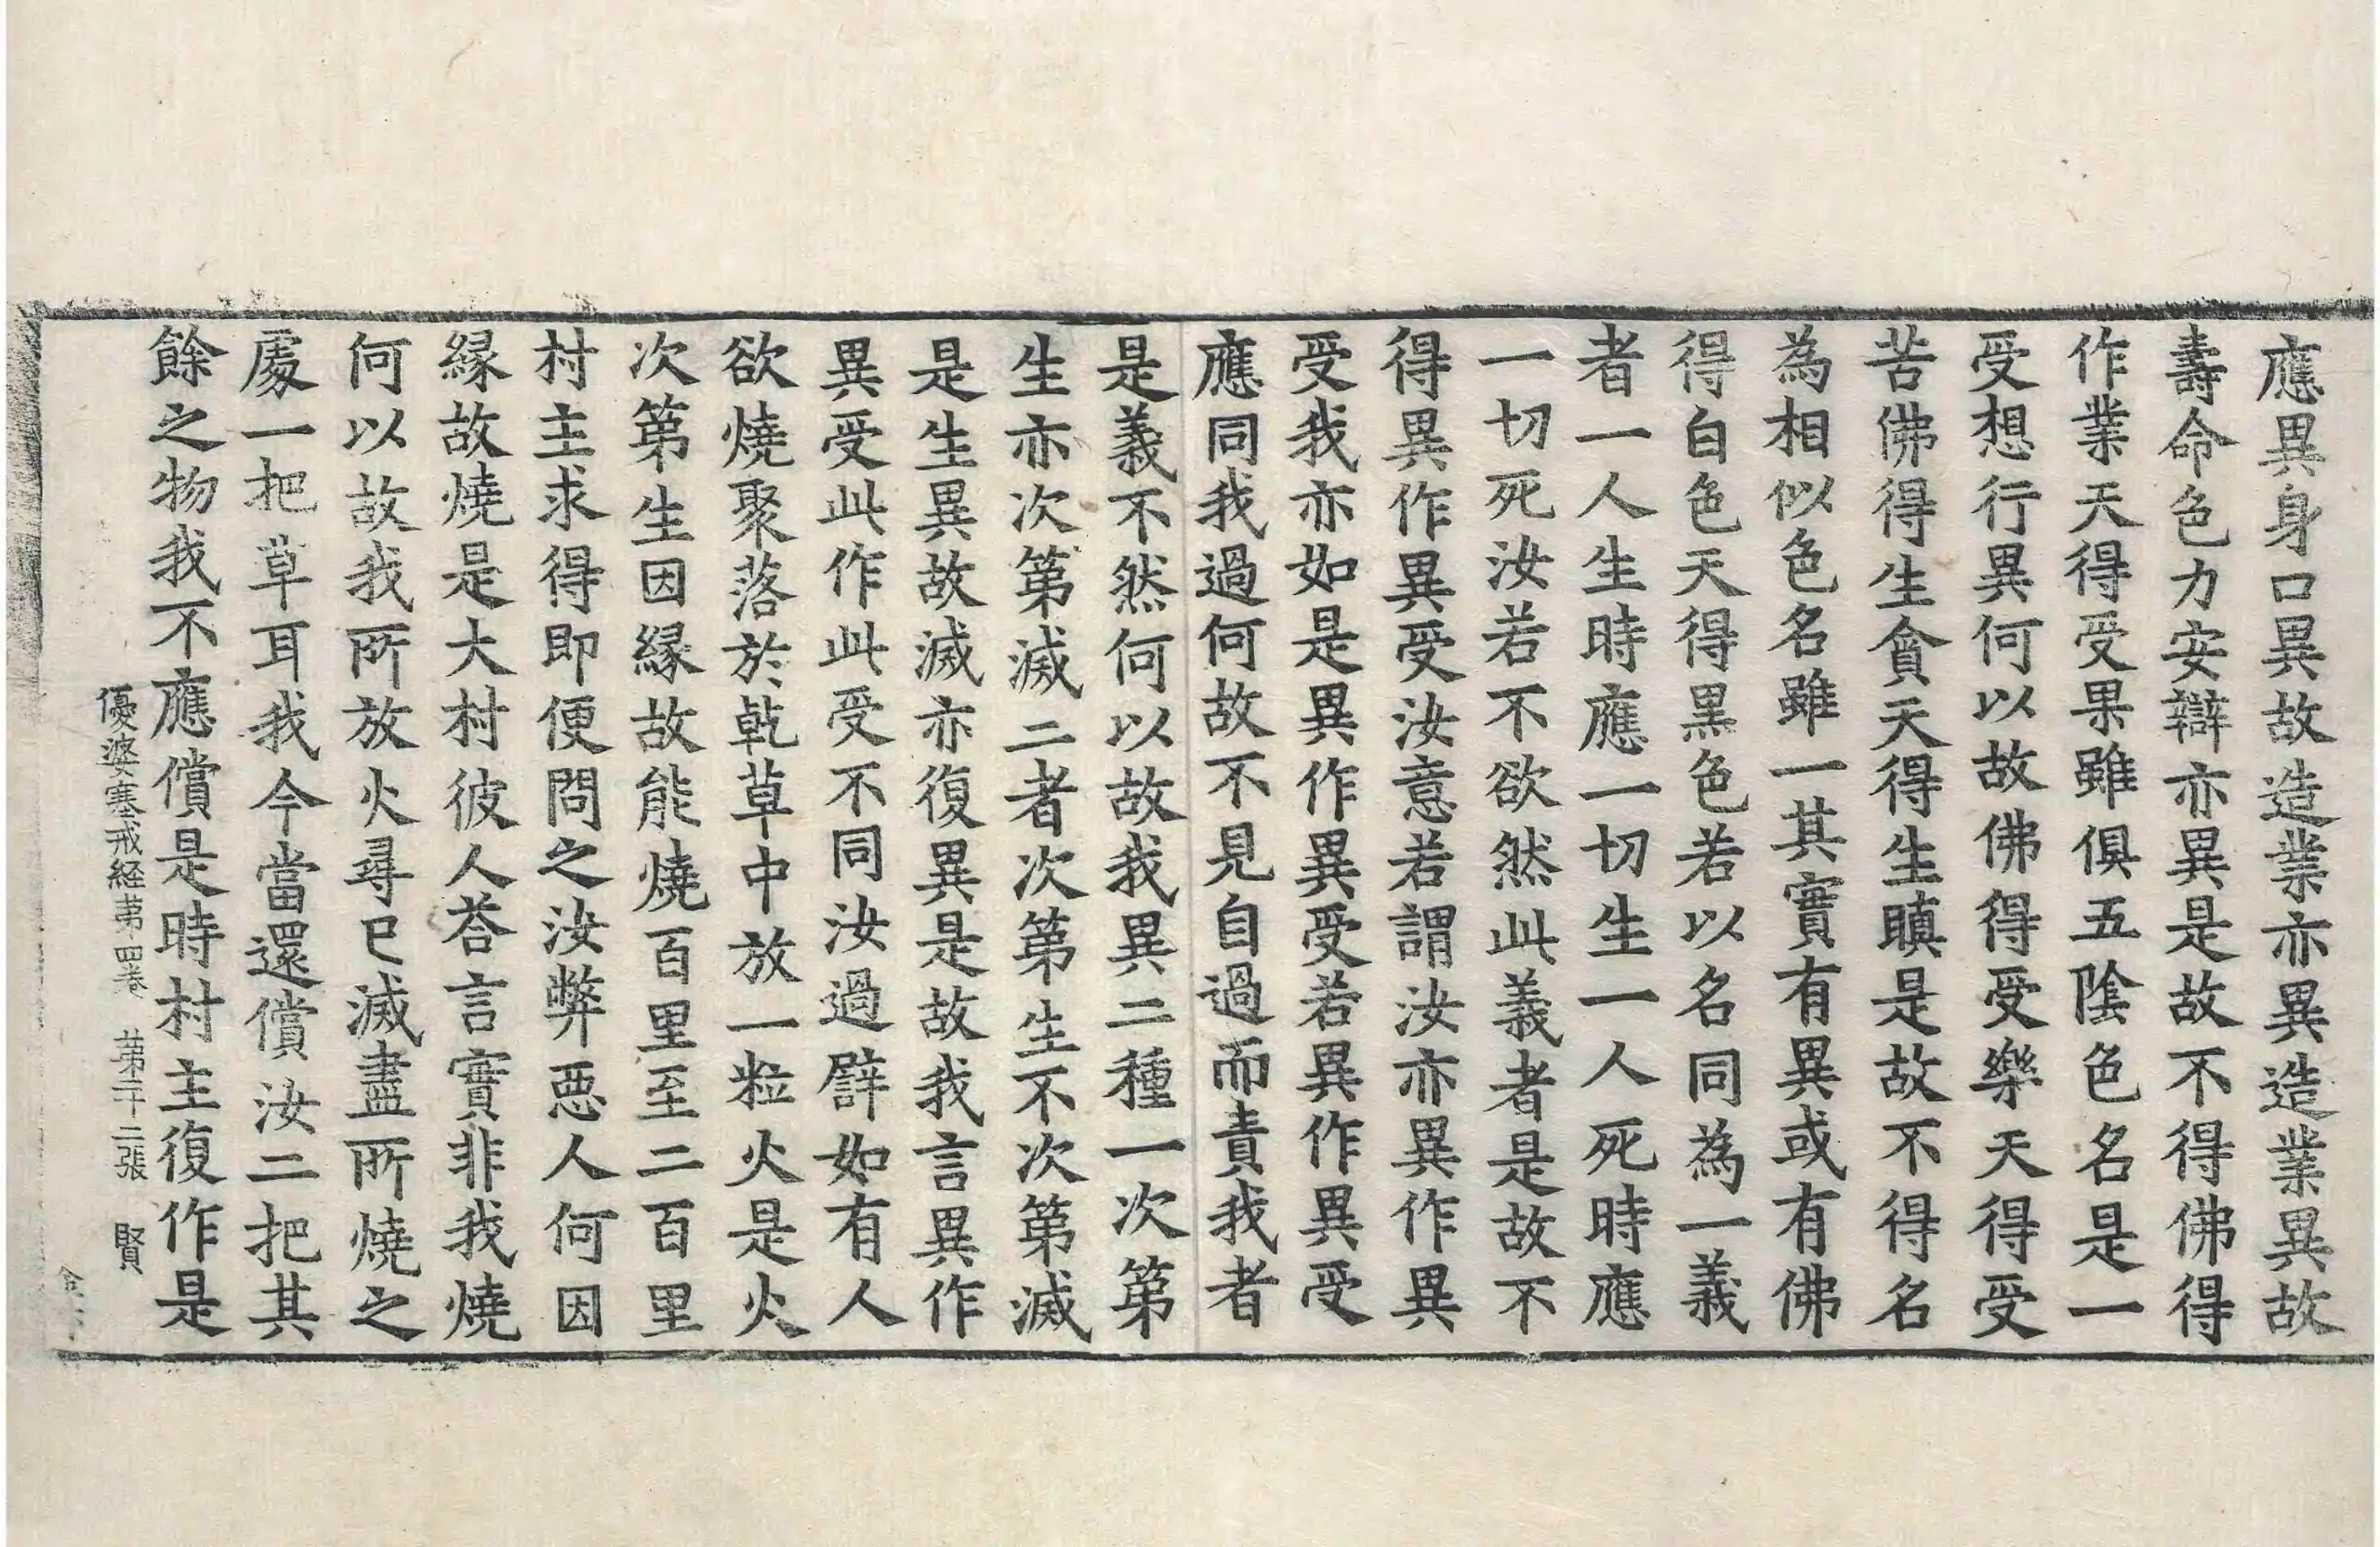 應異身口異故造業亦異造業異故
壽命色力安辯亦異是故不得佛得
作業天得受果雖俱五陰色名是一
受想行異何以故佛得受樂天得受
苦佛得生貪天得生瞋是故不得名
為相似色名雖一其實有異或有佛
得白色天得黑色若以名同為一義
者一人生時應一切生一人死時應
一切死汝若不欲然此義者是故不
得異作異受汝意若謂汝亦異作異
受我亦如是異作異受若異作異受
應同我過何故不見自過而責我者
是義不然何以故我異二種一次第
生亦次第滅二者次第生不次第滅
是生異故滅亦復異是故我言異作
異受此作此受不同汝過譬如有人
欲燒聚落於乹草中放一粒火是火
次第生因縁故能燒百里至二百里
村主求得即便問之汝弊惡人何因
縁故燒是大村彼人荅言實非我燒
何以故我所放火尋已滅盡所燒之
處一把草耳我今當還償汝二把其
餘之物我不應償是時村主復作是
優婆塞戒経苐四卷 苐二十二張 賢